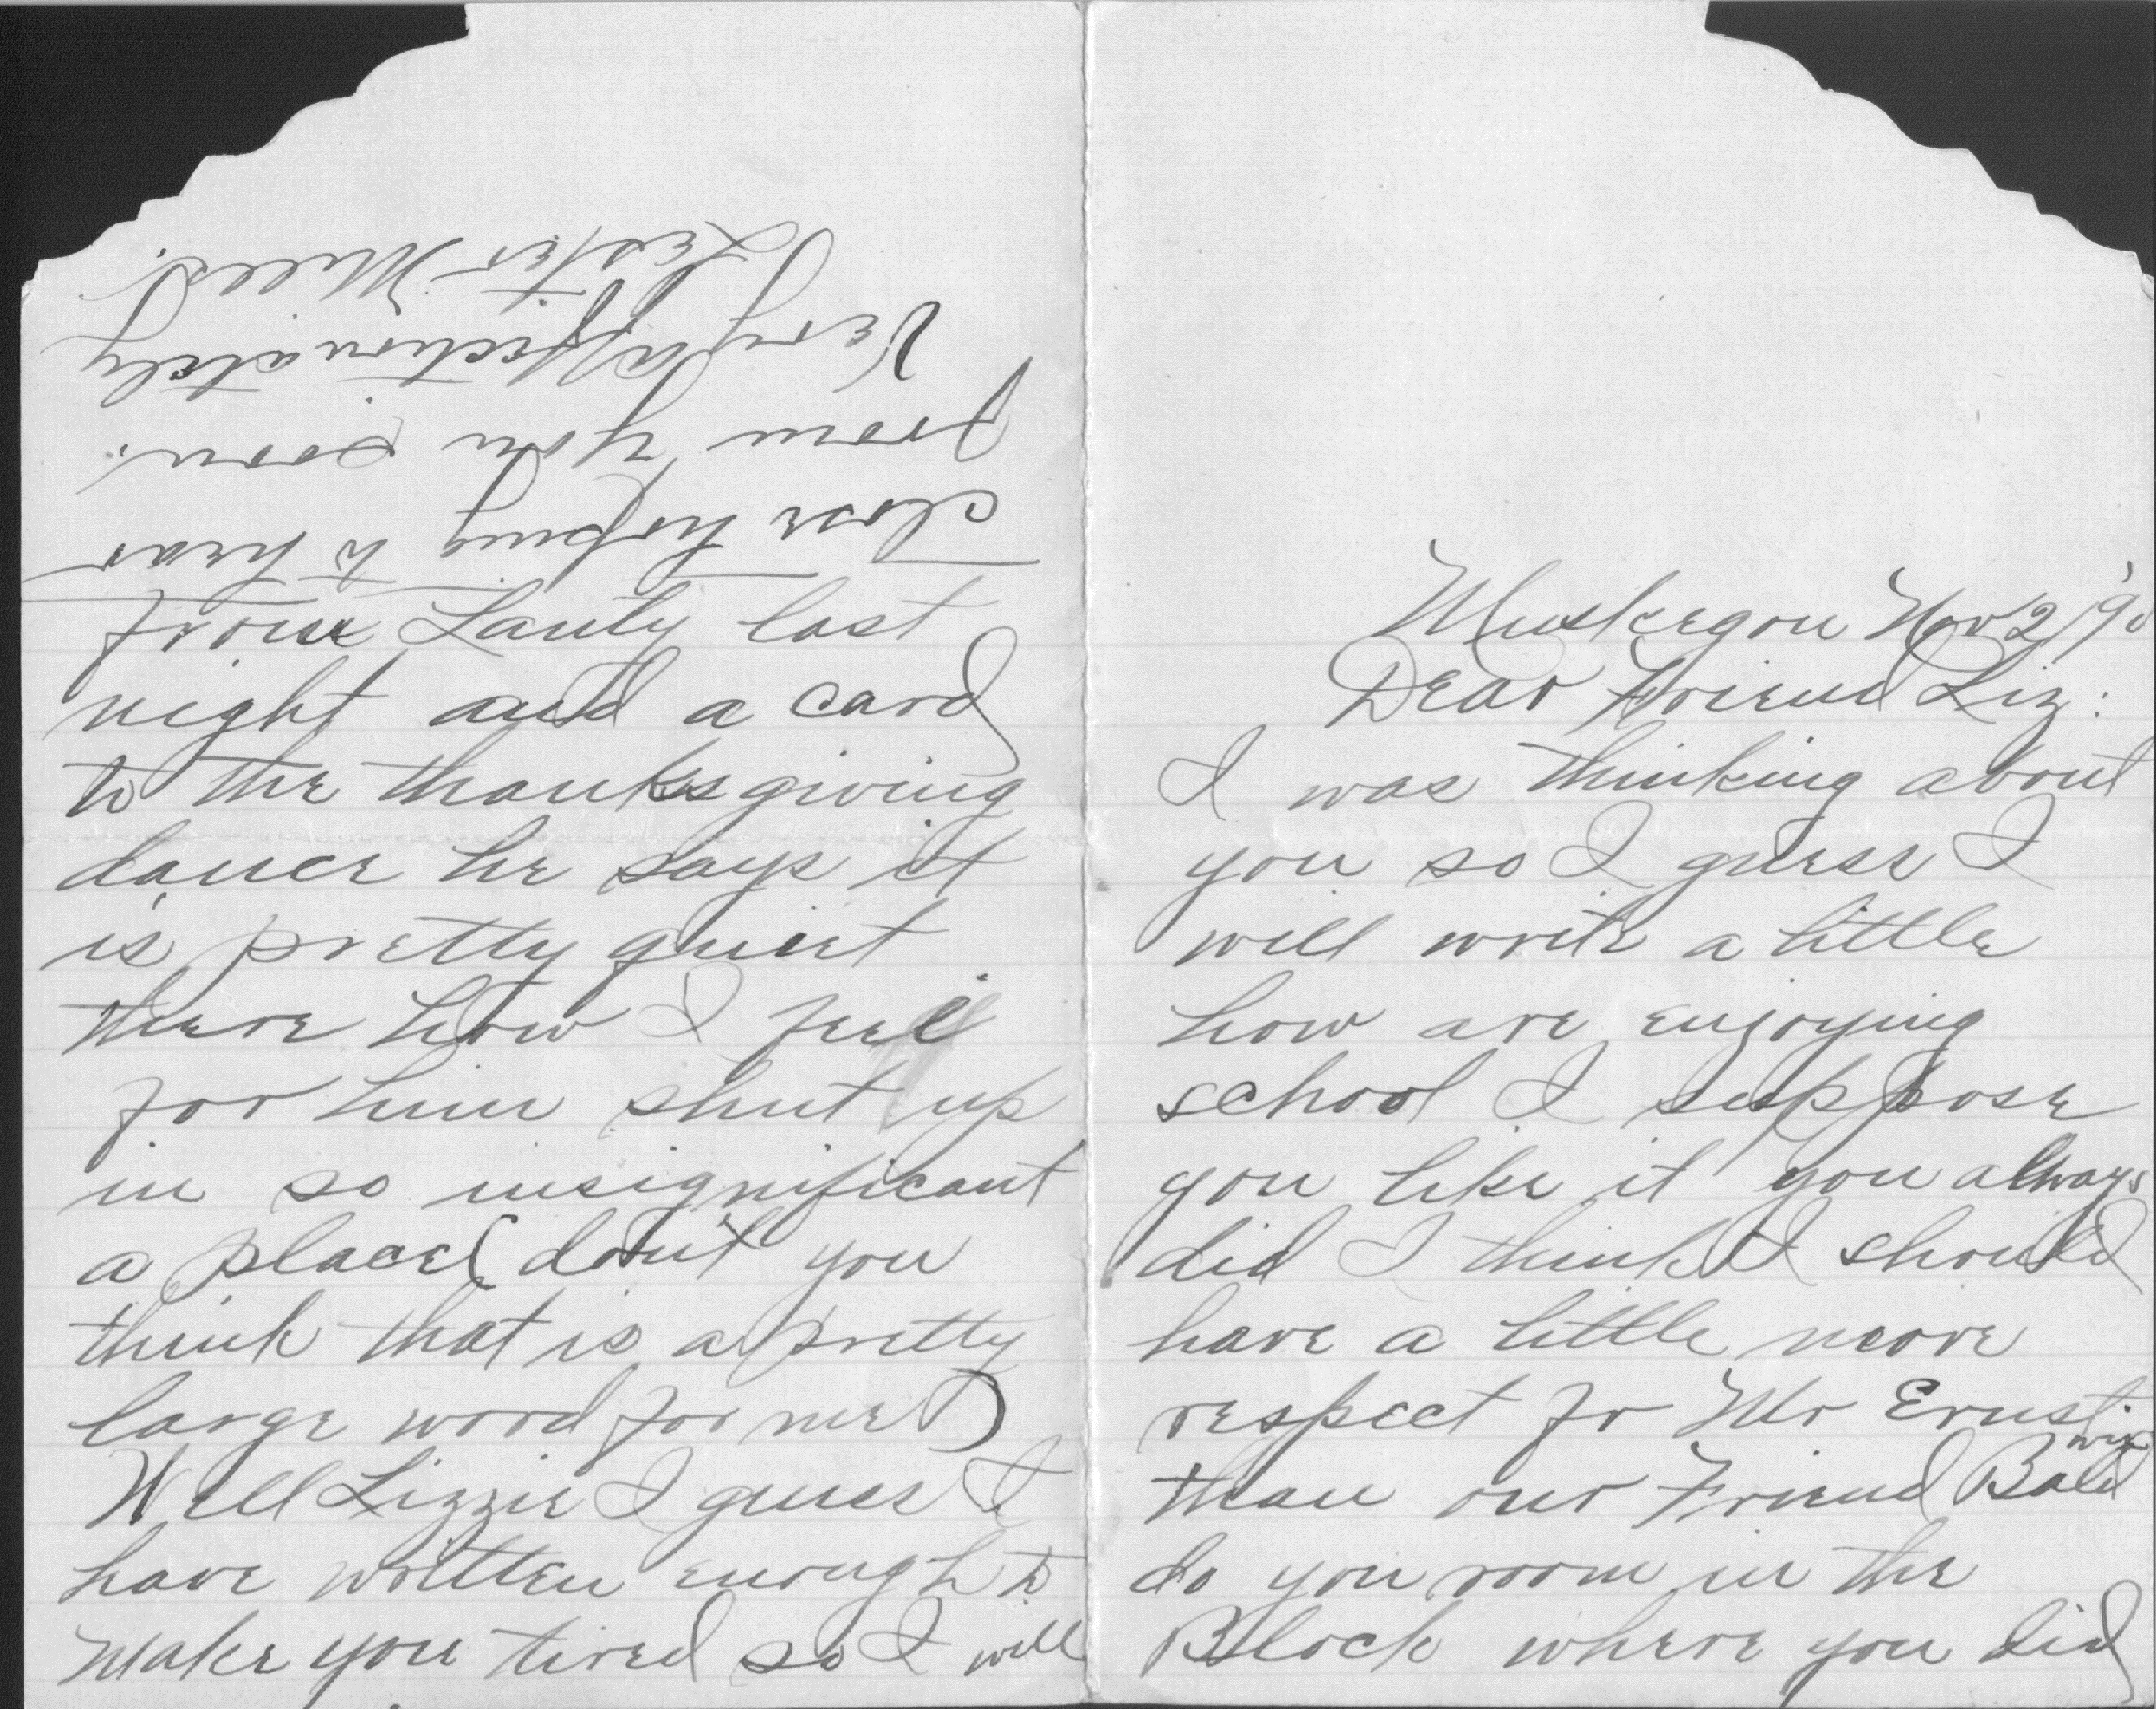 Muskegon Nov 2/90
Dear Friend Liz:
I was thinking about
you so I guess I
will write a little
how are enjoying
school I suppose
you like it you always
did I think I should
have a little more
respect fr Mr Ernst
than our Friend Baldwin
do you room in the
Block where you did
from Lanty last
night and a card
to the thanksgiving
dance he says it
is pretty quiet
there how I feel
for him shut up
in so insignificant
a place (don't you
think that is a pretty
large word for me)
Well Lizzie I guess I
have written enough to
make you tired so I will
close hoping to hear
from you soon.
Very affectionately
Lester Mills.